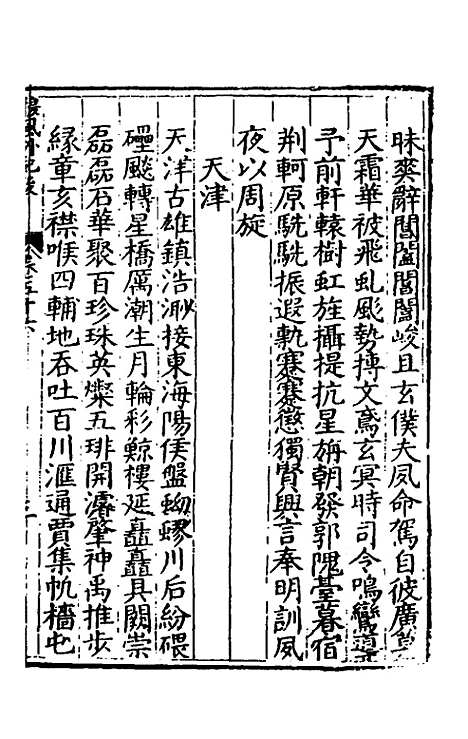 昧爽辭閶闔閶闔峻且玄僕夫夙命駕自彼廣莫
天霜華被飛虬颷勢摶文鳶玄冥時司令鳴鸞導
予前軒轅樹虹旌攝提抗星旃朝發郭隗臺暮宿
荆軻原駪駪振遐軌蹇蹇懲獨賢興言奉明訓夙
夜以周旋
天津
天津古雄鎮浩渺接東海陽侯盤蚴蟉川后紛磈
礧颷轉星橋厲潮生月輪彩鯨樓延矗矗具闕崇
磊磊石華聚百珍珠英燦五琲開濬肇神禹推步
縁章亥襟喉四輔地吞吐百川滙通賈集帆檣屯